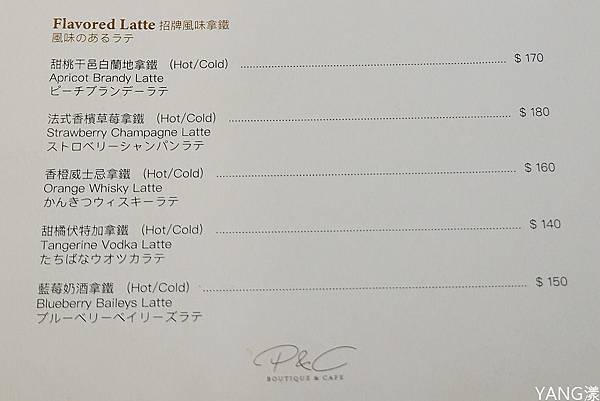 Flavored Latte 招牌風味拿鐵
風味のあるラテ
甜桃干邑白蘭地拿鐵 (Hot/Cold) $ 170
Apricot Brandy Latte
ピーチブランデーラテ
法式香檳草莓拿鐵 (Hot/Cold) $ 180
Strawberry Champagne Latte
ストロベリーシャンパンラテ
香橙威士忌拿鐵 (Hot/Cold) $ 160
Orange Whisky Latte
かんきつウィスキーラテ
甜橘伏特加拿鐵 (Hot/Cold) $ 140
Tangerine Vodka Latte
たちばなウオツカラテ
藍莓奶酒拿鐵 (Hot/Cold) $ 150
Blueberry Baileys Latte
ブルーベリーベイリーズラテ
P&C
BOUTIQUE & CAFE
YANG漾